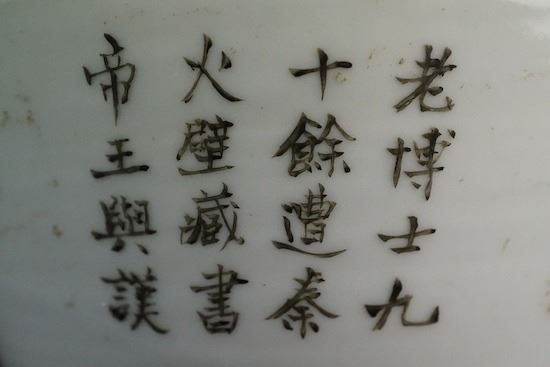 老博士九
十餘遭秦
火壁藏書
帝王與謨